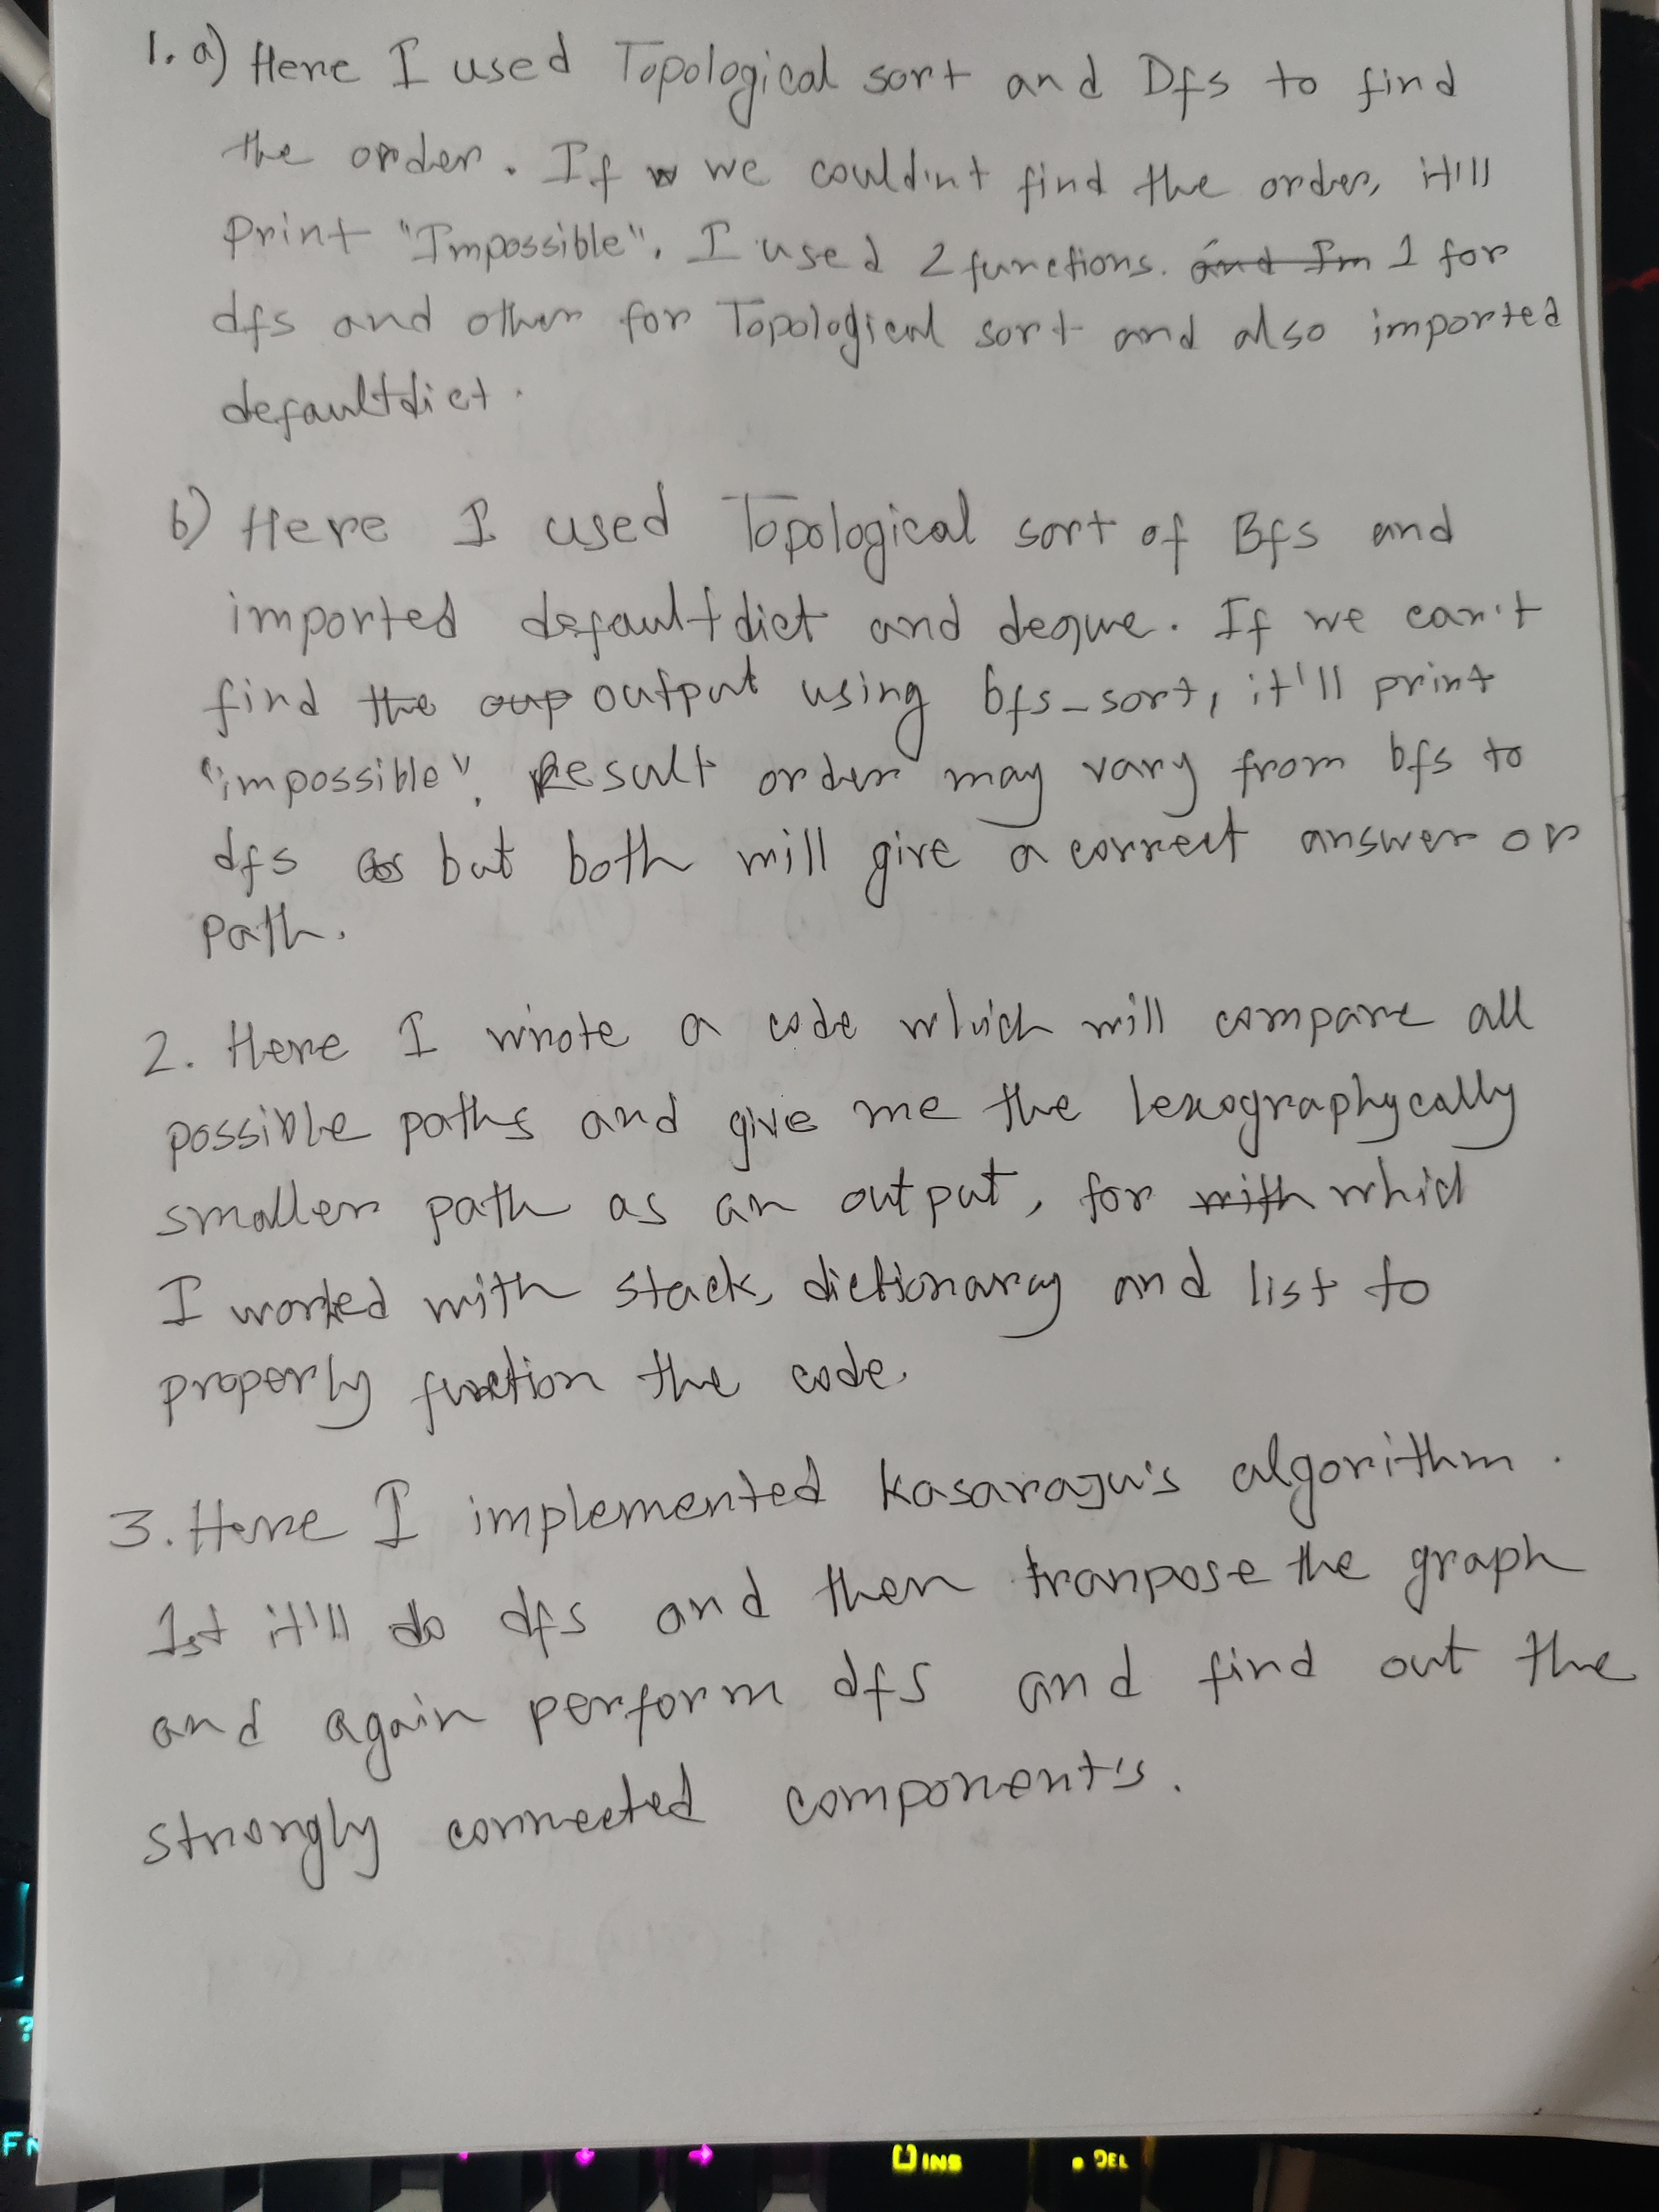 1. a) Here I used Topological sort and Dfs to find
the order. If w we couldn't find the order, it'll
Print "Impossible". I used 2 functions. and Im 1 for
dfs and other for Topological sort and also imported
defaultdict.
b) Here I used Topological sort of Bfs and
imported defaultdict and deque. If we can't
find the oup output using bfs_sort, it'll print
"impossible". Result order may vary from bfs to
dfs as but both will give a correct answer or
path.
2. Here I wrote a code which will compare all
possible paths and give me the lexographycally
smaller path as an output, for with which
I worked with stack, dictionaray and list to
properly function the code.
3. Here I implemented Kasaraju's algorithm.
1st it'll do dfs and then tranpose the graph
and again perform dfs and find out the
strongly connected component's.
?
FN
INS
DEL